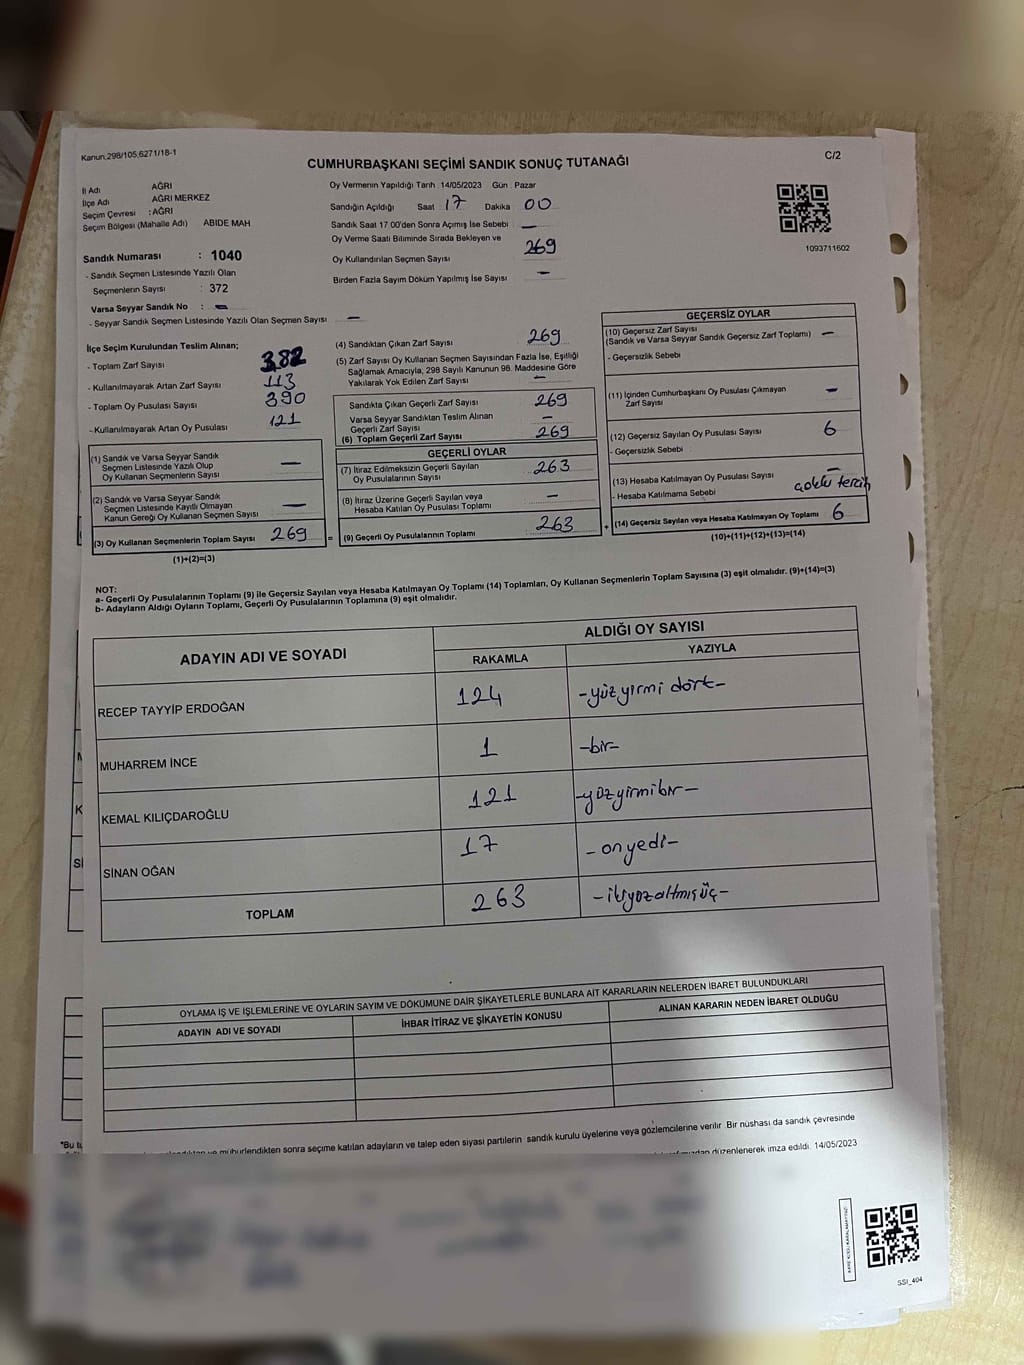 Kanun.298/105,6271/18-1
CUMHURBAŞKANI SEÇİMİ SANDIK SONUÇ TUTANAĞI
C/2
İl Adı AĞRI
İlçe Adı AĞRI MERKEZ
Seçim Çevresi : AĞRI
Seçim Bölgesi (Mahalle Adı) ABİDE MAH
Sandık Numarası : 1040
- Sandık Seçmen Listesinde Yazılı Olan
Seçmenlerin Sayısı : 372
Varsa Seyyar Sandık No : -
- Seyyar Sandık Seçmen Listesinde Yazılı Olan Seçmen Sayısı -
Oy Vermenin Yapıldığı Tarih : 14/05/2023 Gün : Pazar
Sandığın Açıldığı Saat 17 Dakika 00
Sandık Saat 17.00'den Sonra Açımış İse Sebebi -
Oy Verme Saati Bitiminde Sırada Bekleyen ve
Oy Kullandırılan Seçmen Sayısı 269
Birden Fazla Sayım Döküm Yapılmış İse Sayısı -
1093711602
İlçe Seçim Kurulundan Teslim Alınan;
- Toplam Zarf Sayısı 382
- Kullanılmayarak Artan Zarf Sayısı 113
- Toplam Oy Pusulası Sayısı 390
- Kullanılmayarak Artan Oy Pusulası 121
(1) Sandık ve Varsa Seyyar Sandık
Seçmen Listesinde Yazılı Olup
Oy Kullanan Seçmenlerin Sayısı -
(2) Sandık ve Varsa Seyyar Sandık
Seçmen Listesinde Kayıtlı Olmayan
Kanun Gereği Oy Kullanan Seçmen Sayısı -
(3) Oy Kullanan Seçmenlerin Toplam Sayısı 269 =
(1)+(2)=(3)
(4) Sandıktan Çıkan Zarf Sayısı 269
(5) Zarf Sayısı Oy Kullanan Seçmen Sayısından Fazla İse, Eşitliği
Sağlamak Amacıyla, 298 Sayılı Kanunun 98. Maddesine Göre
Yakılarak Yok Edilen Zarf Sayısı -
Sandıkta Çıkan Geçerli Zarf Sayısı 269
Varsa Seyyar Sandıktan Teslim Alınan
Geçerli Zarf Sayısı -
(6) Toplam Geçerli Zarf Sayısı 269
GEÇERLİ OYLAR
(7) İtiraz Edilmeksizin Geçerli Sayılan
Oy Pusulalarının Sayısı 263
(8) İtiraz Üzerine Geçerli Sayılan veya
Hesaba Katılan Oy Pusulası Toplamı -
(9) Geçerli Oy Pusulalarının Toplamı 263 +
GEÇERSİZ OYLAR
(10) Geçersiz Zarf Sayısı
(Sandık ve Varsa Seyyar Sandık Geçersiz Zarf Toplamı) -
- Geçersizlik Sebebi
(11) İçinden Cumhurbaşkanı Oy Pusulası Çıkmayan
Zarf Sayısı -
(12) Geçersiz Sayılan Oy Pusulası Sayısı 6
- Geçersizlik Sebebi
(13) Hesaba Katılmayan Oy Pusulası Sayısı -
- Hesaba Katılmama Sebebi çoklu tercih
(14) Geçersiz Sayılan veya Hesaba Katılmayan Oy Toplamı 6
(10)+(11)+(12)+(13)=(14)
NOT:
a- Geçerli Oy Pusulalarının Toplamı (9) ile Geçersiz Sayılan veya Hesaba Katılmayan Oy Toplamı (14) Toplamları, Oy Kullanan Seçmenlerin Toplam Sayısına (3) eşit olmalıdır. (9)+(14)=(3)
b- Adayların Aldığı Oyların Toplamı, Geçerli Oy Pusulalarının Toplamına (9) eşit olmalıdır.
ADAYIN ADI VE SOYADI
ALDIĞI OY SAYISI
RAKAMLA YAZIYLA
RECEP TAYYİP ERDOĞAN 124 -yüz yirmi dört-
MUHARREM İNCE 1 -bir-
KEMAL KILIÇDAROĞLU 121 -yüzyirmibir-
SİNAN OĞAN 17 -onyedi-
TOPLAM 263 -ikiyüzaltmışüç-
OYLAMA İŞ VE İŞLEMLERİNE VE OYLARIN SAYIM VE DÖKÜMÜNE DAİR ŞİKAYETLERLE BUNLARA AİT KARARLARIN NELERDEN İBARET BULUNDUKLARI
ADAYIN ADI VE SOYADI İHBAR İTİRAZ VE ŞİKAYETİN KONUSU ALINAN KARARIN NEDEN İBARET OLDUĞU
*Bu
mühürlendikten sonra seçime katılan adayların ve talep eden siyasi partilerin sandık kurulu üyelerine veya gözlemcilerine verilir. Bir nüshası da sandık çevresinde
düzenlenerek imza edildi. 14/05/2023
SSİ_404